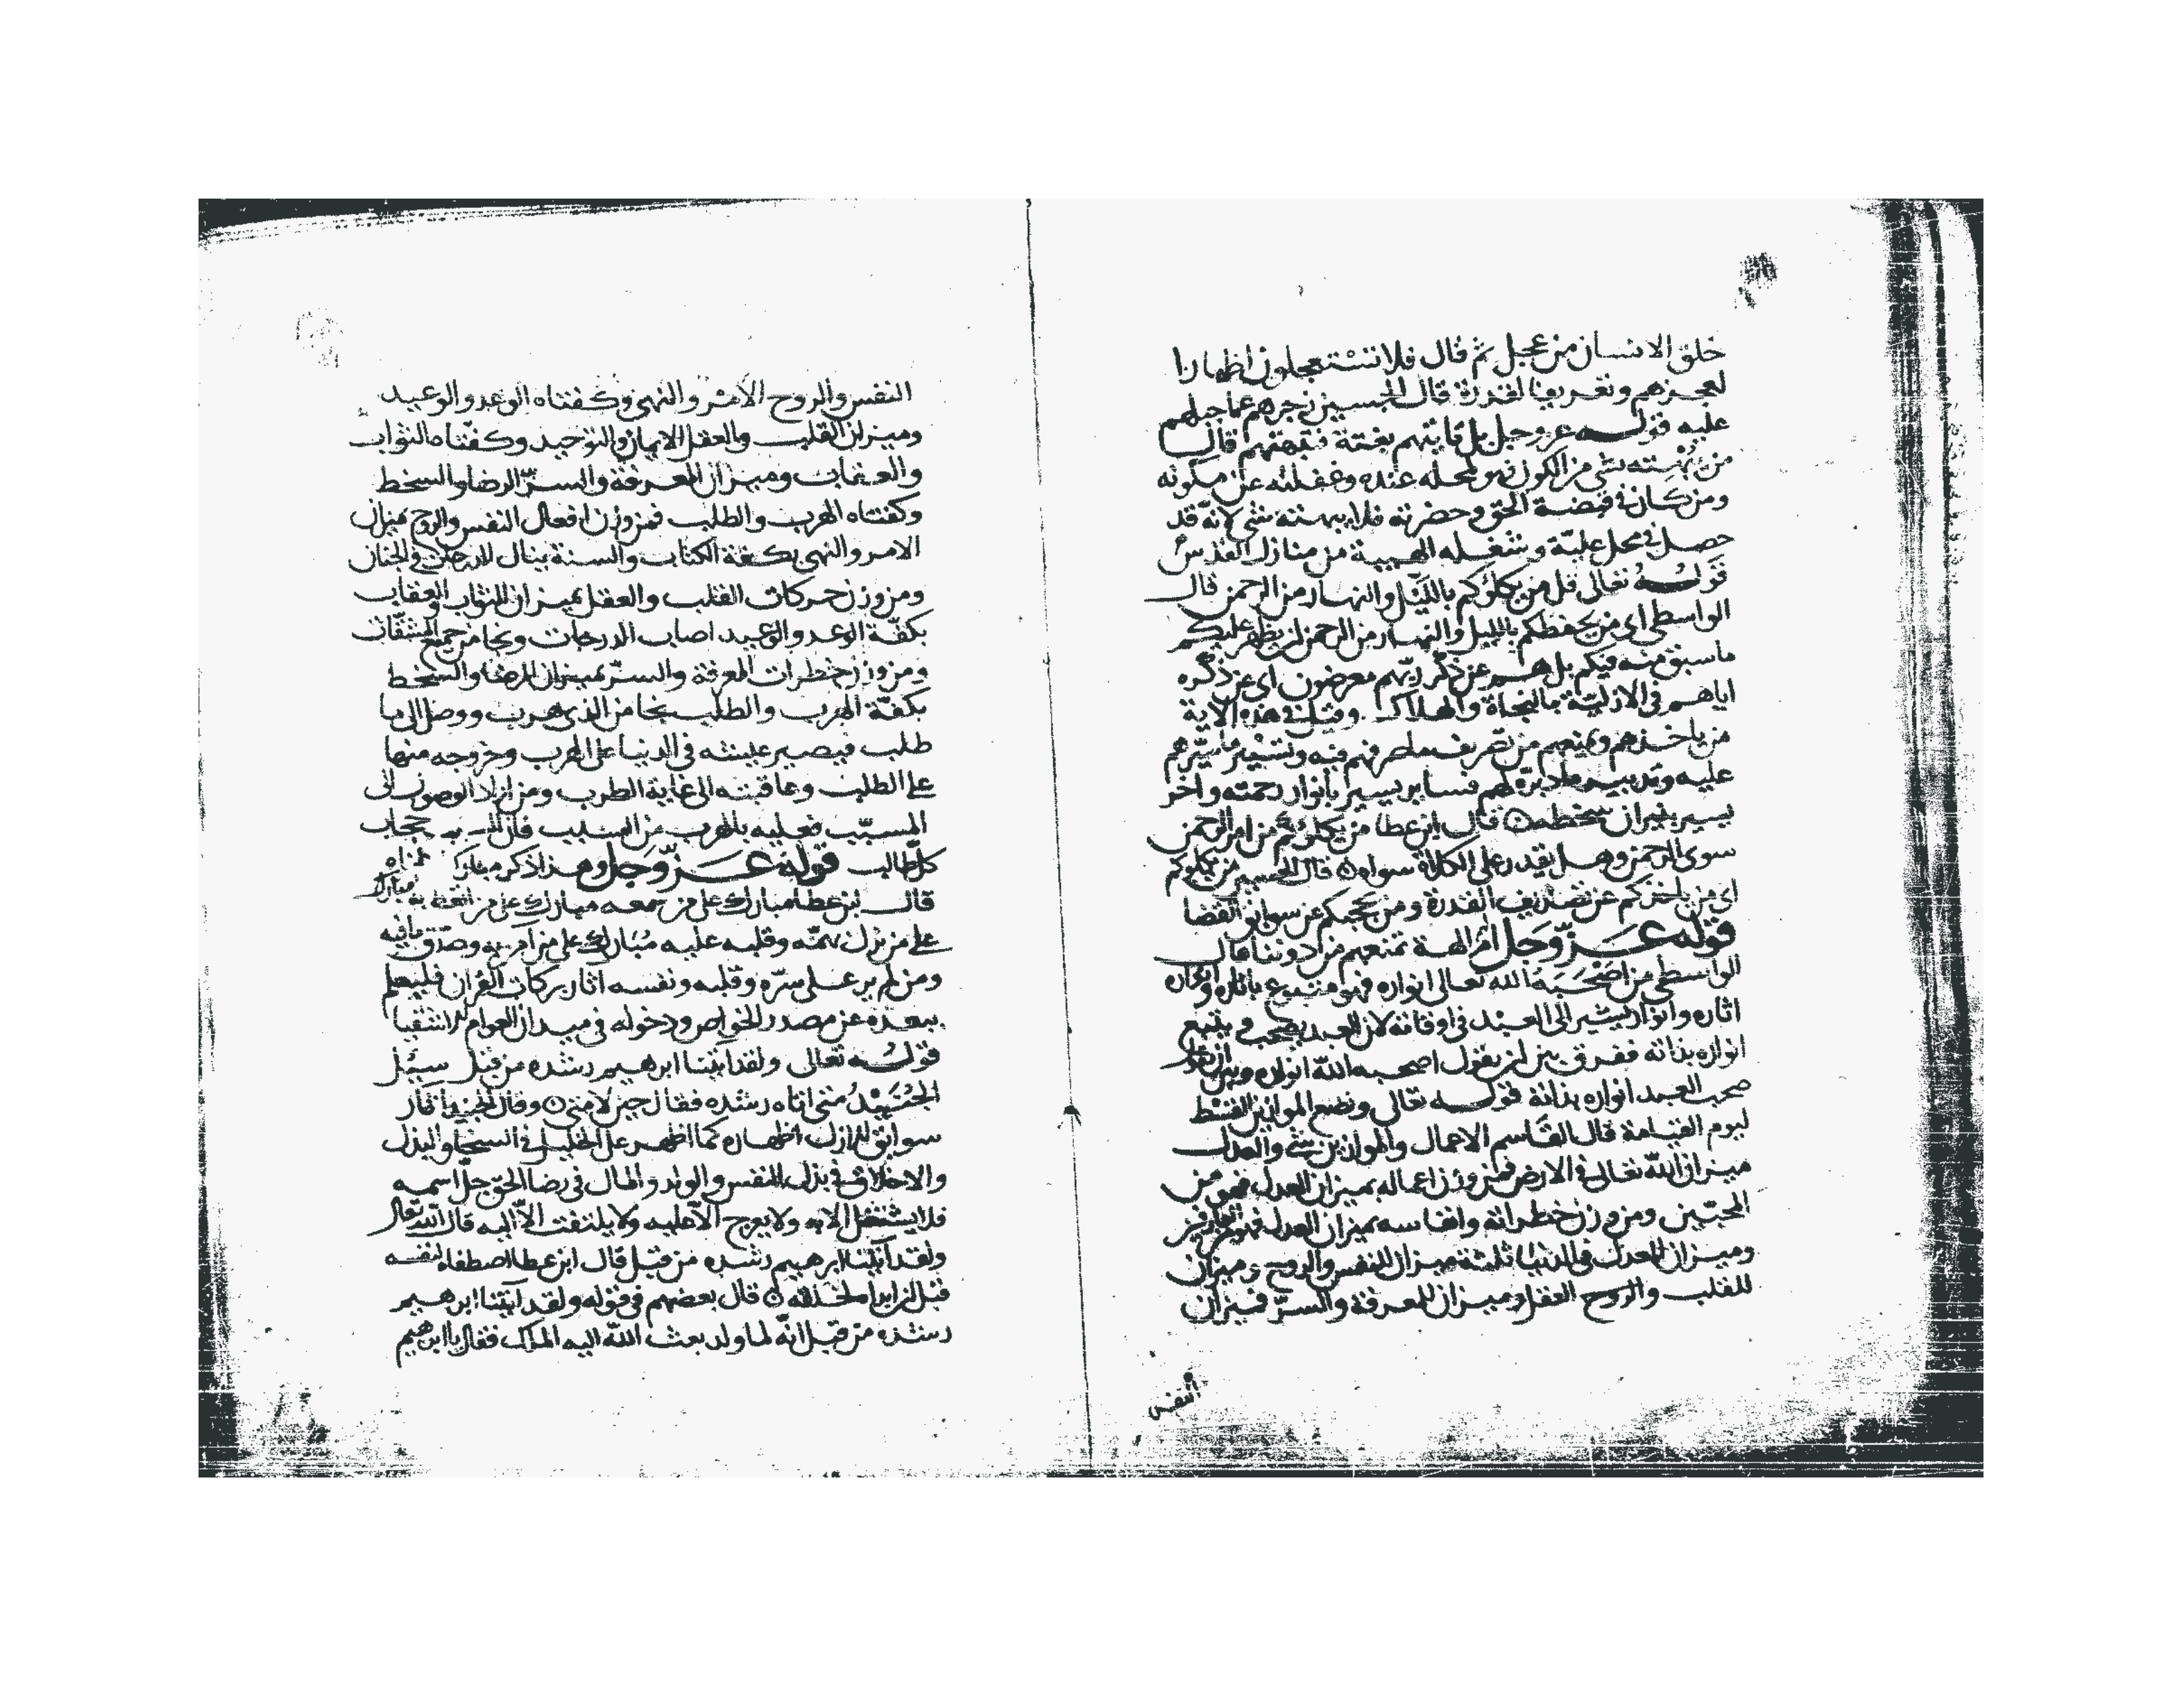 خلق الانسان من عجل ثم قال فلا تستعجلون اظهارا
لعجزهم وتعريفا لقدرة قال الحسين زجرهم عما جبلهم
عليه قوله عز وجل بل تاتيهم بغتة فتبهتهم قال
من بهته شي من الكون فهو لمحله عنده وغفلته عن مكونه
ومن كان في قبضة الحق وحضرته فلا يبهته شي لانه قد
حصل في محل عليّة وشغله الهيبة من منازل القدس
قوله تعالى قل من يكلؤكم بالليل والنهار من الرحمن قال
الواسطي اي من يحفظكم بالليل والنهار من الرحمن ان يظهر عليكم
ما سبق منه فيكم بل هم عن ذكر ربّهم معرضون اي عن ذكره
اياهم في الازليّة بالنجاة والهلاك وقيل في هذه الاية
من ياخذهم ويمنعهم من تصريف ما صرفهم فيه وتسيير ما سيّرهم
عليه وتدبير ما دبره لهم فساير يسير بأنوار رحمته واخر
يسير بنيران سخطه قال ابن عطا من يكلؤكم من امر الرحمن
سوى الرحمن وهل يقدر على الكلاة سواه قال الحسين من يكلؤكم
اي من ياخذكم عن تصاريف القدرة ومن يحجبكم عن سوابق القضا
قوله عزّ وجل ام لهم الهة تمنعهم من دوننا قال
الواسطي من اصحبه الله تعالى انواره فهو ممتنوع باثاره وانكاره
اثاره وانوار يشير الى العبد في اوقاته لان العبد يصحب في
انواره بذاته ففرق بين ان يقول اصحبه الله انواره وبين ان يقول
صحب العبد انواره بذاته قوله تعالى ونضع الموازين القسط
ليوم القيامة قال القاسم الاعمال والموازين شتى والعدل
ميزان الله تعالى في الارض فمن وزن اعماله بميزان العدل فهو من
المحبّين ومن وزن خطراته وانفاسه بميزان العدل فهو من العارفين
وميزان العدل في الدنيا ثلثة ميزان للنفس والروح وميزان
للقلب والروح العقل وميزان للمعرفة والسرّ فميزان
النفس
النفس والروح الامر والنهي وكفتاه الوعد والوعيد
وميزان القلب والعقل الايمان والتوحيد وكفّتاه الثواب
والعقاب وميزان المعرفة والسرّ الرضا والسخط
وكفتاه الهرب والطلب فمن وزن افعال النفس والروح بميزان
الامر والنهي بكفة الكتاب والسنة ينال الدرجات في الجنان
ومن وزن حركات القلب والعقل بميزان الثواب والعقاب
بكفّة الوعد والوعيد اصاب الدرجات ونجا من جميع المشقّات
ومن وزن خطرات المعرفة والسرّ بميزان الرضا والسخط
بكفّة الهرب والطلب نجا من الذي هرب ووصل الى ما
طلب فيصير عيشه في الدنيا على الهرب وخروجه منها
على الطلب وعاقبته الى غاية الطرب ومن اراد الوصول الى
المسبّب فعليه بالهرب من السبب فان السبب حجاب
كل طالب قوله عزّ وجل وهذا ذكر مبارك انزلناه
قال ابن عطا مبارك على من سمعه مبارك على من اتعظ به مبارك
على من نزل همّه وقلبه عليه مبارك على من آمن به وصدّق مافيه
ومن لم ير على سرّه وقلبه ونفسه اثار بركات القران فليعلم
ببعده عن مصدر الخواص ودخوله في ميدان العوام
قوله تعالى ولقد اتينا ابرهيم رشده من قبل سيل
الجنيد متى اتاه رشده فقال حين لا متى وقال الجنيد
سوابق الازل اظهاره كما اظهر على الخليل في السخا والبذل
والاخلاق في بذل النفس والولد والمال في رضا الحق جل اسمه
فلا يشتغل الا به ولا يعرج الا عليه ولا يلتفت الاّ اليه قال الله تعالى
ولقد آتينا ابرهيم رشده من قبل قال ابن عطا اصطفاه لنفسه
قبل ان ابداه لخلقه قال بعضهم في قوله ولقد آتينا ابرهيم
رشده من قبل انّه لما ولد بعث الله اليه الملك فقال يا ابرهيم